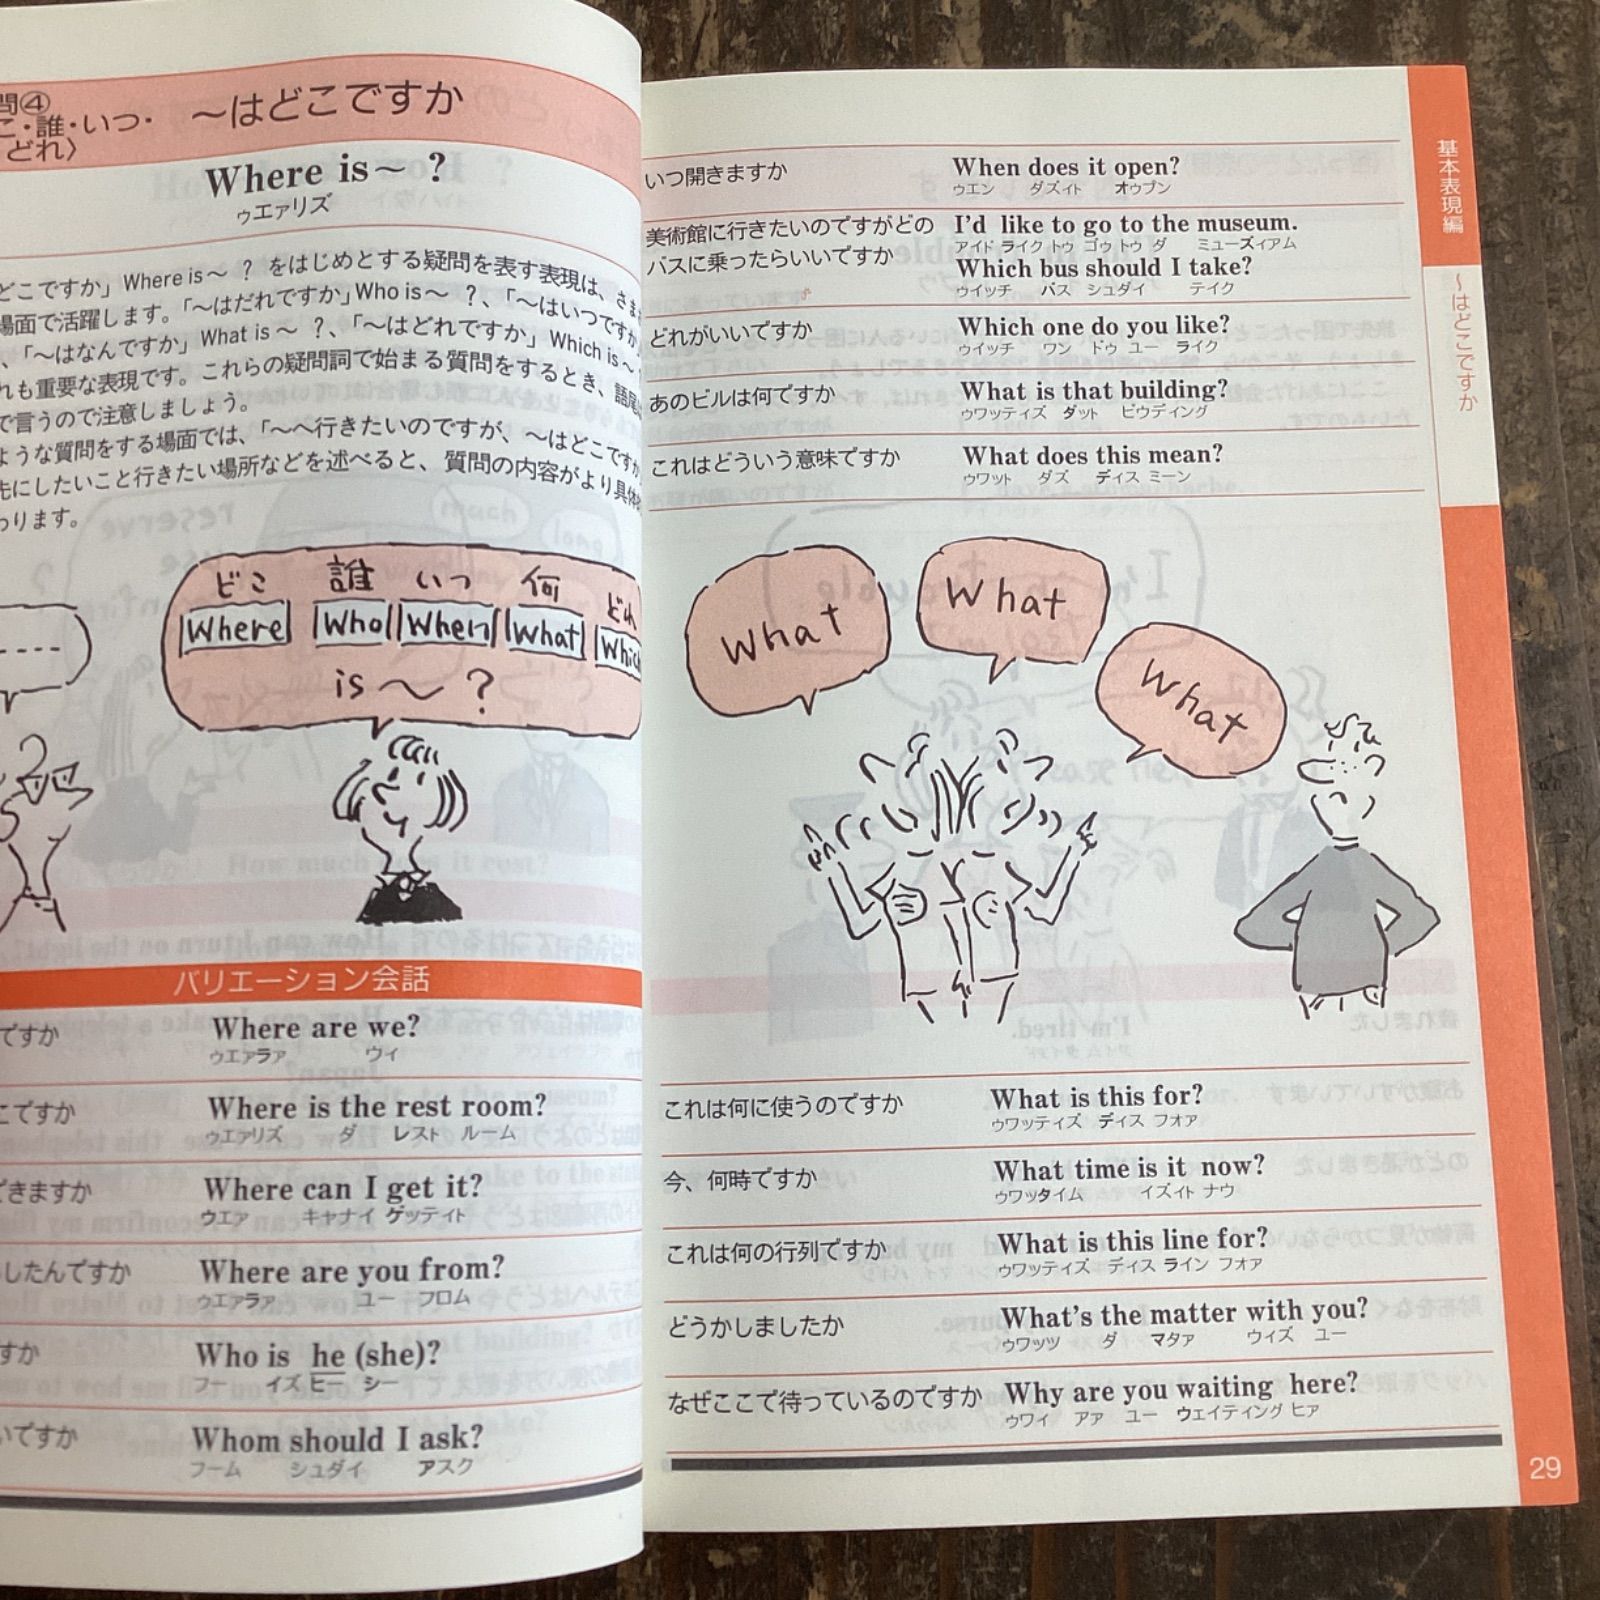 問④
こ・誰・いつ・
どれ〉
～はどこですか
Where is～ ?
ウエァリズ
どこですか」Where is～ ? をはじめとする疑問を表す表現は、さま
場面で活躍します。「～はだれですか」Who is～ ?、「～はいつですか」
、「～はなんですか」What is～ ?、「～はどれですか」Which is～
れも重要な表現です。これらの疑問詞で始まる質問をするとき、語尾
で言うので注意しましょう。
ような質問をする場面では、「～へ行きたいのですが、～はどこですか
先にしたいこと行きたい場所などを述べると、質問の内容がより具体
わります。
どこ 誰 いつ 何 どれ
Where Who When What Which
is ～ ?
バリエーション会話
ですか Where are we?
ウエァラァ ウィ
こですか Where is the rest room?
ウエァリズ ダ レスト ルーム
できますか Where can I get it?
ウエァ キャナイ ゲッティト
したんですか Where are you from?
ウエァラァ ユー フロム
すか Who is he (she)?
フー イズ ヒー シー
いですか Whom should I ask?
フーム シュダイ アスク
いつ開きますか When does it open?
ウエン ダズィト オゥプン
美術館に行きたいのですがどの I'd like to go to the museum.
アイド ライク トゥ ゴゥ トゥ ダ ミューズィアム
バスに乗ったらいいですか Which bus should I take?
ウイッチ バス シュダイ テイク
どれがいいですか Which one do you like?
ウイッチ ワン ドゥ ユー ライク
あのビルは何ですか What is that building?
ウワッティズ ダット ビウディング
これはどういう意味ですか What does this mean?
ウワット ダズ ディス ミーン
What
What
What
これは何に使うのですか What is this for?
ウワッティズ ディス フォア
今、何時ですか What time is it now?
ウワッタイム イズィト ナウ
これは何の行列ですか What is this line for?
ウワッティズ ディス ライン フォア
どうかしましたか What's the matter with you?
ウワッツ ダ マタァ ウィズ ユー
なぜここで待っているのですか Why are you waiting here?
ウワイ アァ ユー ウェイティング ヒァ
基本表現編
～はどこですか
29